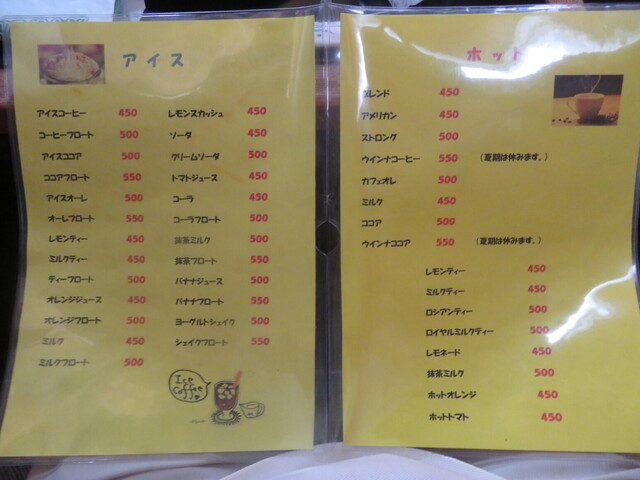 アイス
アイスコーヒー 450
コーヒーフロート 500
アイスココア 500
ココアフロート 550
アイスオーレ 500
オーレフロート 550
レモンティー 450
ミルクティー 450
ティーフロート 500
オレンジジュース 450
オレンジフロート 500
ミルク 450
ミルクフロート 500
レモンスカッシュ 450
ソーダ 450
クリームソーダ 500
トマトジュース 450
コーラ 450
コーラフロート 500
抹茶ミルク 500
抹茶フロート 550
バナナジュース 500
バナナフロート 550
ヨーグルトシェイク 500
シェイクフロート 550
Ice
Coffee
ホット
ブレンド 450
アメリカン 450
ストロング 500
ウインナコーヒー 550 (夏期は休みます。)
カフェオレ 500
ミルク 450
ココア 500
ウインナココア 550 (夏期は休みます。)
レモンティー 450
ミルクティー 450
ロシアンティー 500
ロイヤルミルクティー 500
レモネード 450
抹茶ミルク 500
ホットオレンジ 450
ホットトマト 450